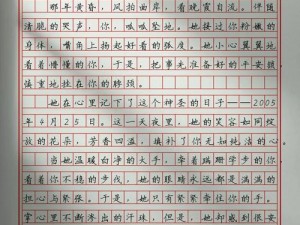 那年黄昏，风拍曲岸，看晚霞自流。伴随
清脆的哭声，你，呱呱坠地。她接过你粉嫩的
身体，嘴角上扬起好看的弧度。她小心翼翼地
看着懵懂的你，于是，把事先准备好的平安锁
慎重地挂在你的脖颈。
她在心里记下了这个神圣的日子——2005
年4月25日。这一天夜里，她的笑容如同绽
放的花朵，芳香四溢，填补了你无如纯洁的心。
当她温暖白净的大手，牵着蹒跚学步的你
看着你不稳的步伐，她的眼睛永远都是满满的
担心与紧张。于是，她只有紧紧牵住你的手。
掌心里不断渗出的汗珠，但是，她却感到很安